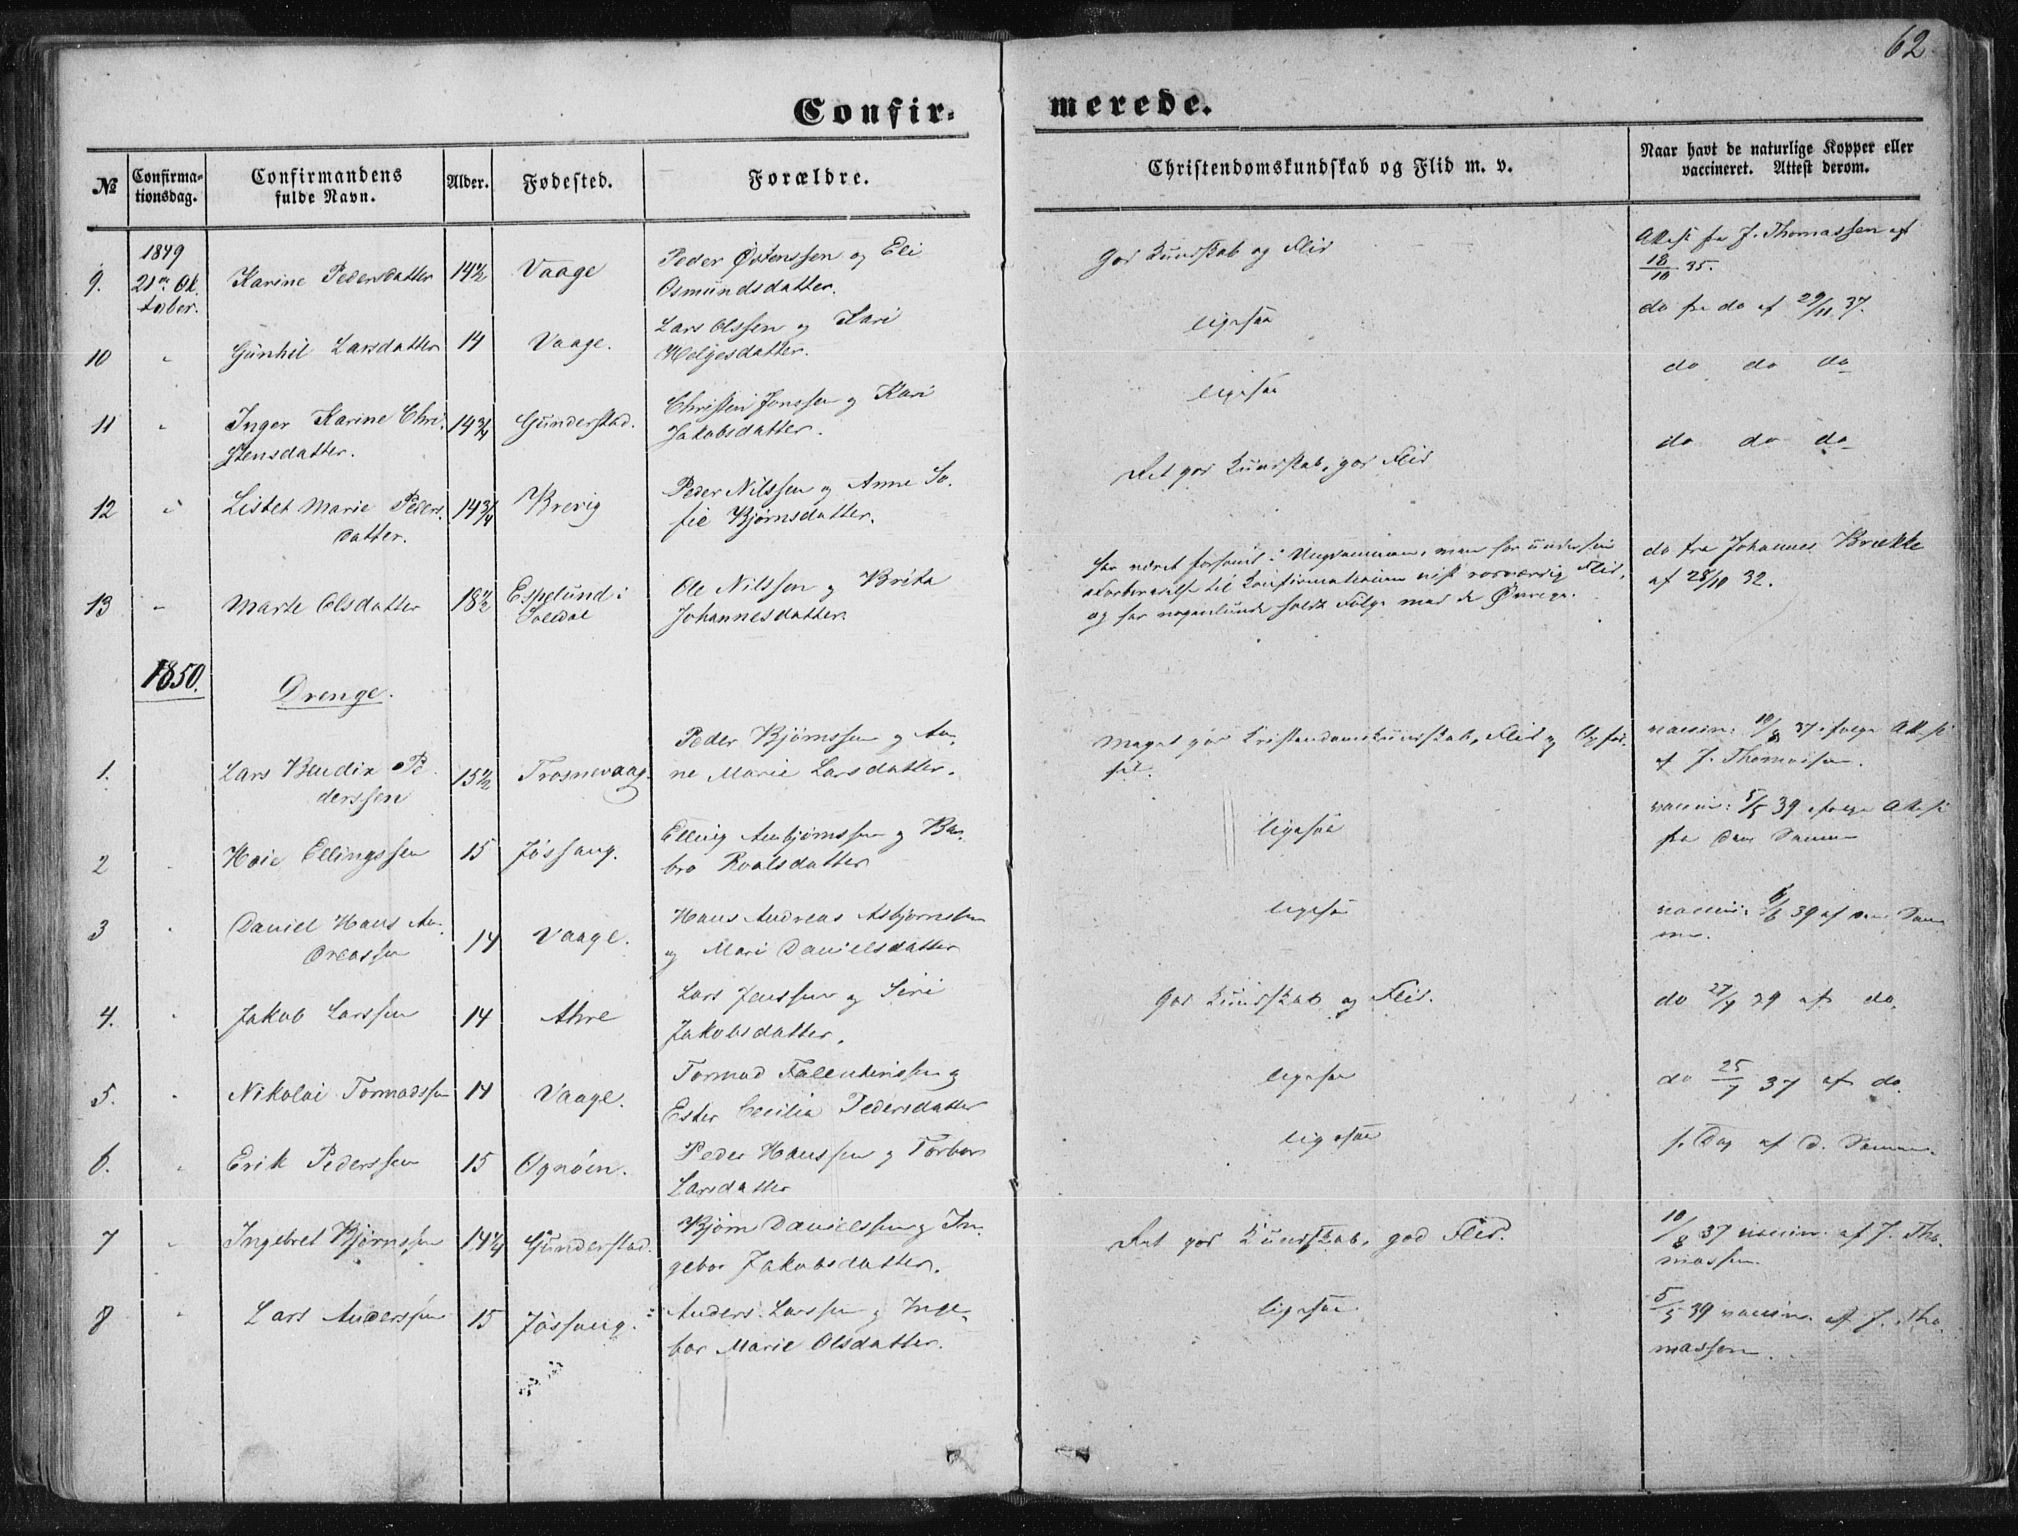 62
Confir-
merede.
№
Confirma-
tionsdag.
Confirmandens
fulde Navn.
Alder.
Fødested.
Forældre.
Christendomskundskab og Flid m. v.
Naar havt de naturlige Kopper eller
vaccineret. Attest derom.
1849
21de Ok
tober.
9. Karine Pedersdatter 14½ Vaage
Peder Østenssen og Eli
Osmundsdatter.
God Kundskab og Flid
Attest fra J. Thomassen af
18/10 35.
10 " Gunhil Larsdatter 14 Vaage.
Lars Olssen og Kari
Helgesdatter.
ligesaa
do fra do af 29/11 37.
11 " Inger Karine Chri-
stensdatter. 14¾ Gunderstad.
Christen Jonssen og Kari
Jakobsdatter.
ligesaa
do do do
12 " Lisbet Marie Peders-
datter. 14¾ Brevig
Peder Nilssen og Anne So-
fie Bjørnsdatter.
Ret god Kundskab, god Flid
do do do
13 " Marte Olsdatter 18½ Espelund i
Soledal
Ole Nilssen og Brita
Johannesdatter.
har været forsømt i Ungdommen, men har under sin
Forberedelse til Konfirmationen vist rosværdig Flid,
og har nogenlunde holdt Følge med de Øvrige.
do fra Johannes Brække
af 28/10 32.
1850.
Drenge.
1. Lars Baudix Pe-
derssen 15½ Trosnevaag.
Peder Bjørnssen og An-
ne Marie Larsdatter.
Meget god Kristendomskundskab, Flid og Opfør-
sel.
vaccin: 10/8 37 ifølge Attest
af J. Thomassen.
2 " Hoie Ellingssen 15 Jøssang.
Elling Asbjørnssen og Bar-
bro Roalsdatter
ligesaa
vaccin: 5/5 39 ifølge Attest
fra den Samme
3 " Daniel Hans An-
dreassen 14 Vaage.
Hans Andreas Asbjørnssen
og Mari Danielsdatter
ligesaa
vaccin: 6/6 39 af den Sam-
me.
4. " Jakob Larssen 14 Athre
Lars Janssen og Siri
Jakobsdatter.
God Kundskab og Flid.
do 27/9 39 af do.
5. " Nikolai Tormodssen 14 Vaage.
Tormod Falentinssen og
Ester Cecilia Pedersdatter
ligesaa
do 25/7 37 af do.
6. " Erik Pederssen 15 Ognøen.
Peder Hanssen og Torbor
Larsdatter
ligesaa
s. Dag af d. Samme.
7 " Ingebret Bjørnssen 14¼ Gunderstad.
Bjørn Danielssen og In-
gebor Jakobsdatter.
Ret god Kundskab, god Flid.
10/8 37 vaccin. af J. Tho-
massen.
8 " Lars Anderssen 15 Jøssang.
Anders Larssen og Inge-
bor Marie Olsdatter.
ligesaa
5/5 39 vaccin. af J. Tho-
massen.